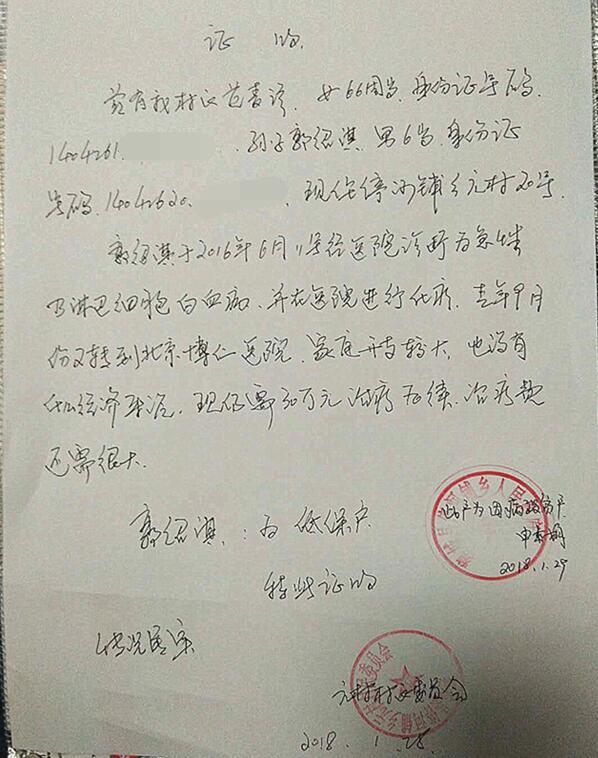 证 明
兹有我村 范青珍，女 66周岁，身份证号码，
1404261. 孙子郭绍淇，男6岁，身份证
号码，14042620. 现住停河铺乡元村20号.
郭绍淇于2016年6月11号经医院诊断为急性
B淋巴细胞白血病，并在医院进行化疗，去年9月
份又转到北京博仁医院，家庭开支较大，也没有
什么经济来源，现仍需30万元治疗 后续治疗费
还需很大.
郭绍淇：为低保户
特此证明
情况属实
此户为因病致贫户
2018.1.29
元村村民委员会
2018. 1. 28